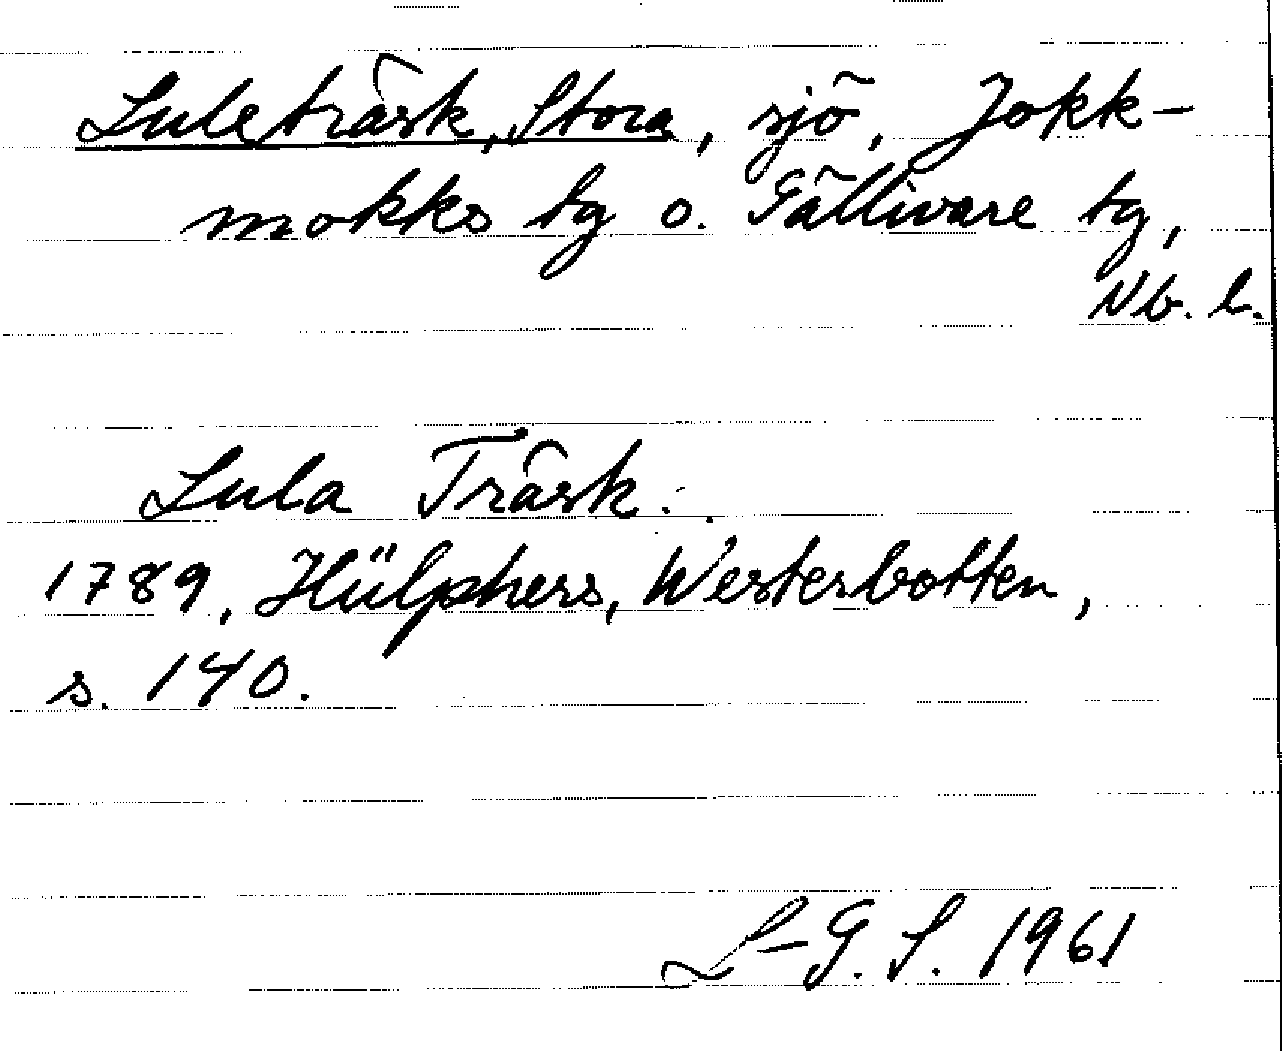 Luleträsk, Stora, sjö, Jokk-
mokks tg o. Gällivare tg,
Nb. l.
Lula Träsk.
1789, Hülphers, Westerbotten,
s. 140.
L-G. S. 1961